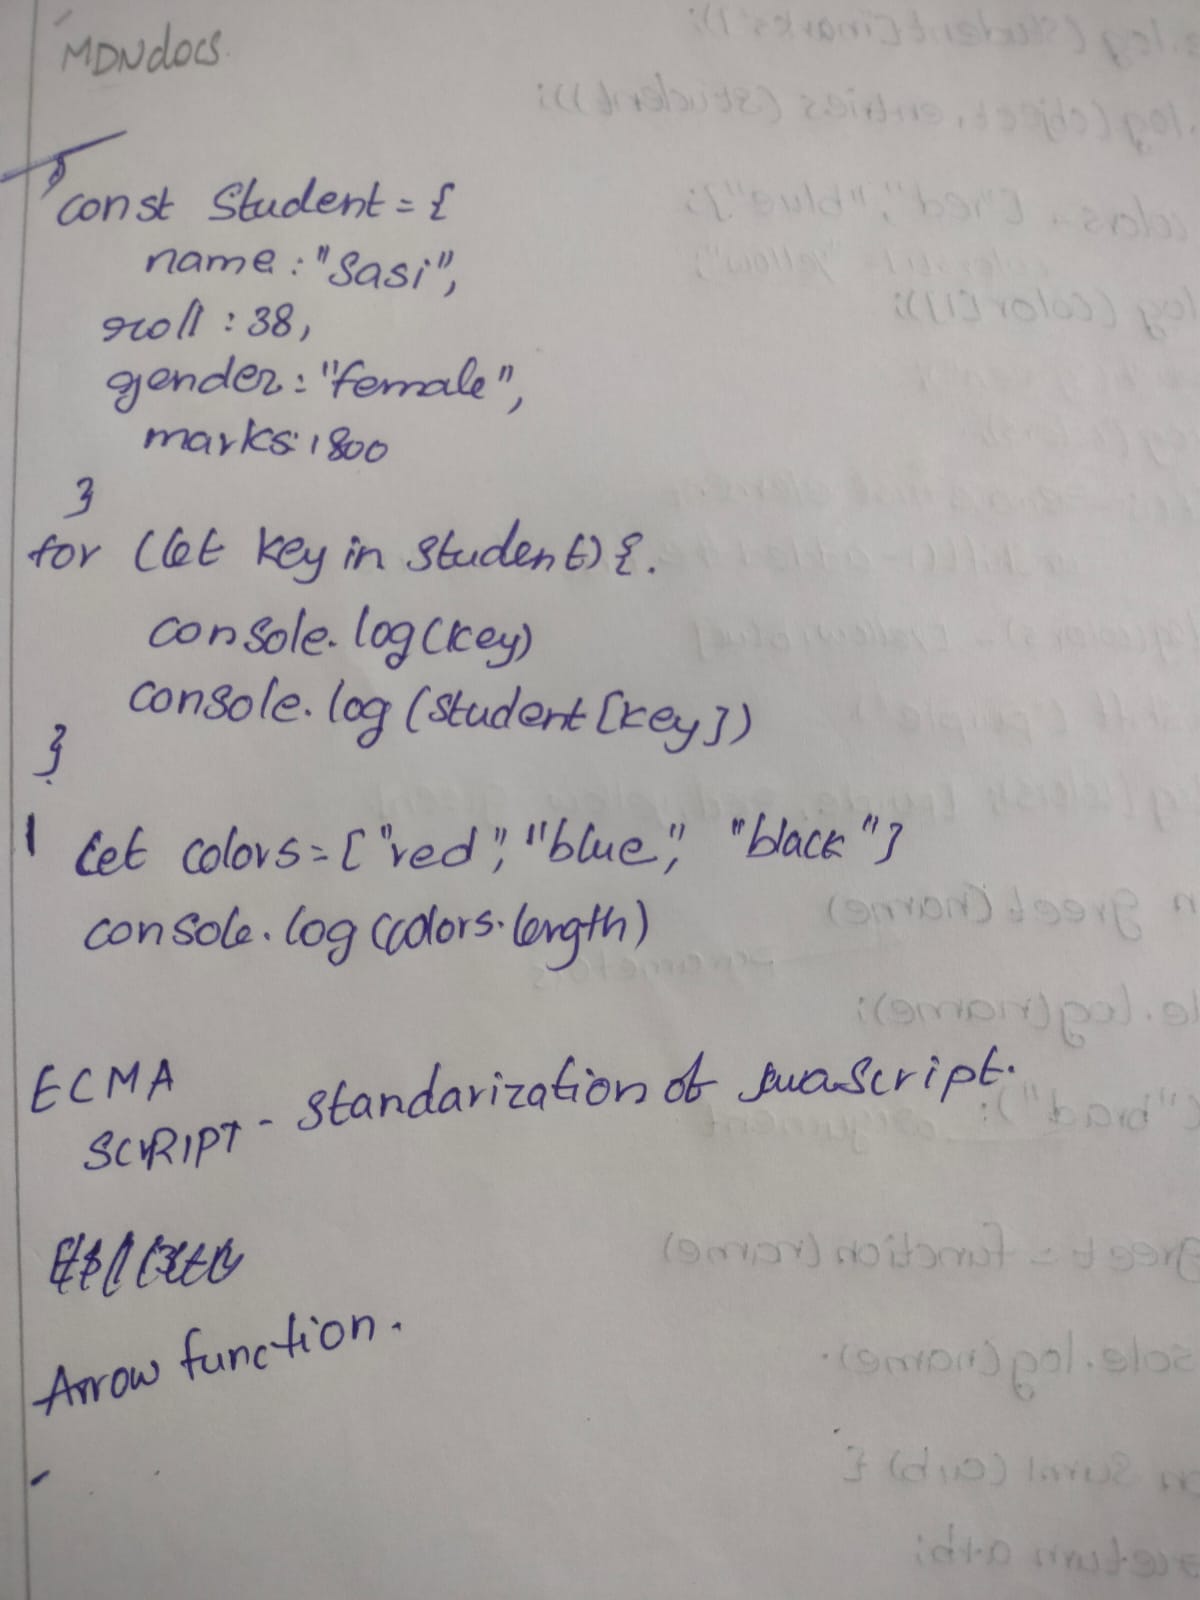 MDN docs
const Student = {
name : "Sasi",
roll : 38,
gender : "female",
marks: 1800
}
for (let key in student) {.
console.log(key)
console.log (student [key])
}
let colors = ["red", "blue", "black"]
console.log (colors.length)
ECMA
SCRIPT - Standarization of JavaScript.
Arrow function.